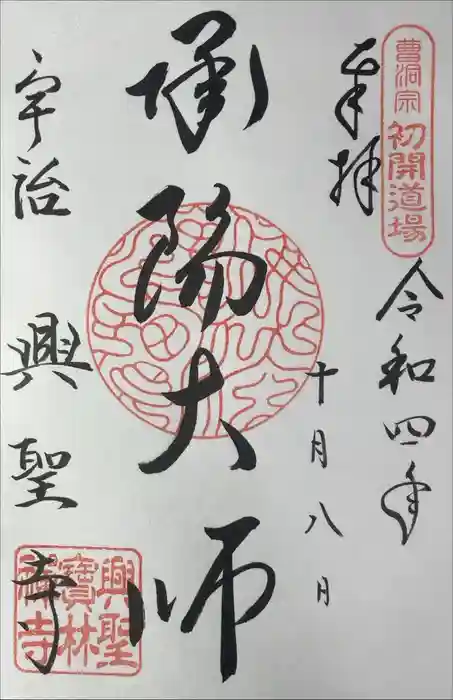 曹洞宗 初開道場
奉拝
令和四年
十月八日
承陽大師
宇治 興聖寺
興聖
寳林
禅寺